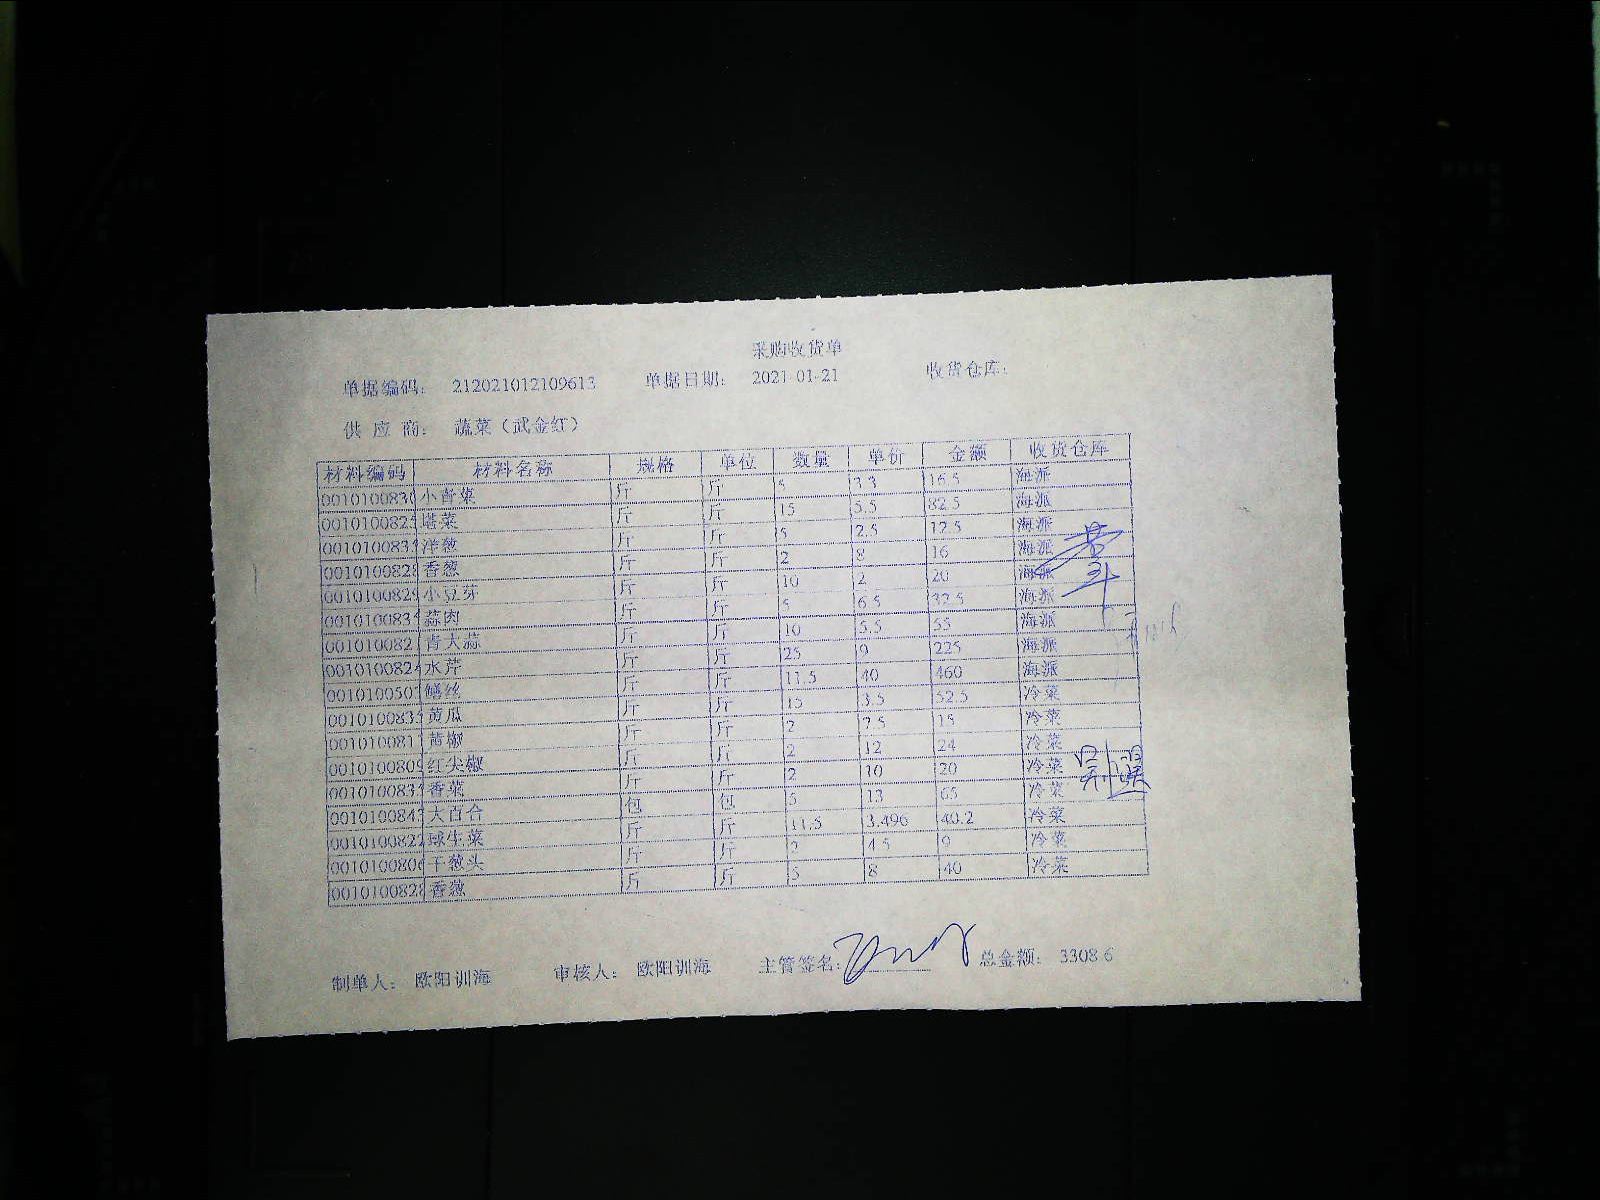 采购收货单
单据编码： 212021012109613 单据日期： 2021-01-21 收货仓库：
供 应 商： 蔬菜（武金红）
材料编码 材料名称 规格 单位 数量 单价 金额 收货仓库
0010100830 小青菜 斤 斤 5 3.3 16.5 海派
001010082 塔菜 斤 斤 15 5.5 82.5 海派
001010083 洋葱 斤 斤 5 2.5 12.5 海派
0010100828 香葱 斤 斤 2 8 16 海派
001010082 小豆芽 斤 斤 10 2 20 海派
001010083 蒜肉 斤 斤 5 6.5 32.5 海派
001010082 青大蒜 斤 斤 10 5.5 55 海派
001010082 水芹 斤 斤 25 9 225 海派
001010050 鳝丝 斤 斤 11.5 40 460 海派
001010083 黄瓜 斤 斤 15 3.5 52.5 冷菜
001010081 茴椒 斤 斤 2 7.5 15 冷菜
001010080 红尖椒 斤 斤 2 12 24 冷菜
001010083 香菜 斤 斤 2 10 20 冷菜
001010084 大百合 包 包 5 13 65 冷菜
001010082 球生菜 斤 斤 11.5 3.496 40.2 冷菜
001010080 干葱头 斤 斤 2 4.5 9 冷菜
0010100828 香葱 斤 斤 5 8 40 冷菜
制单人： 欧阳训海 审核人： 欧阳训海 主管签名： 总金额： 3308.6